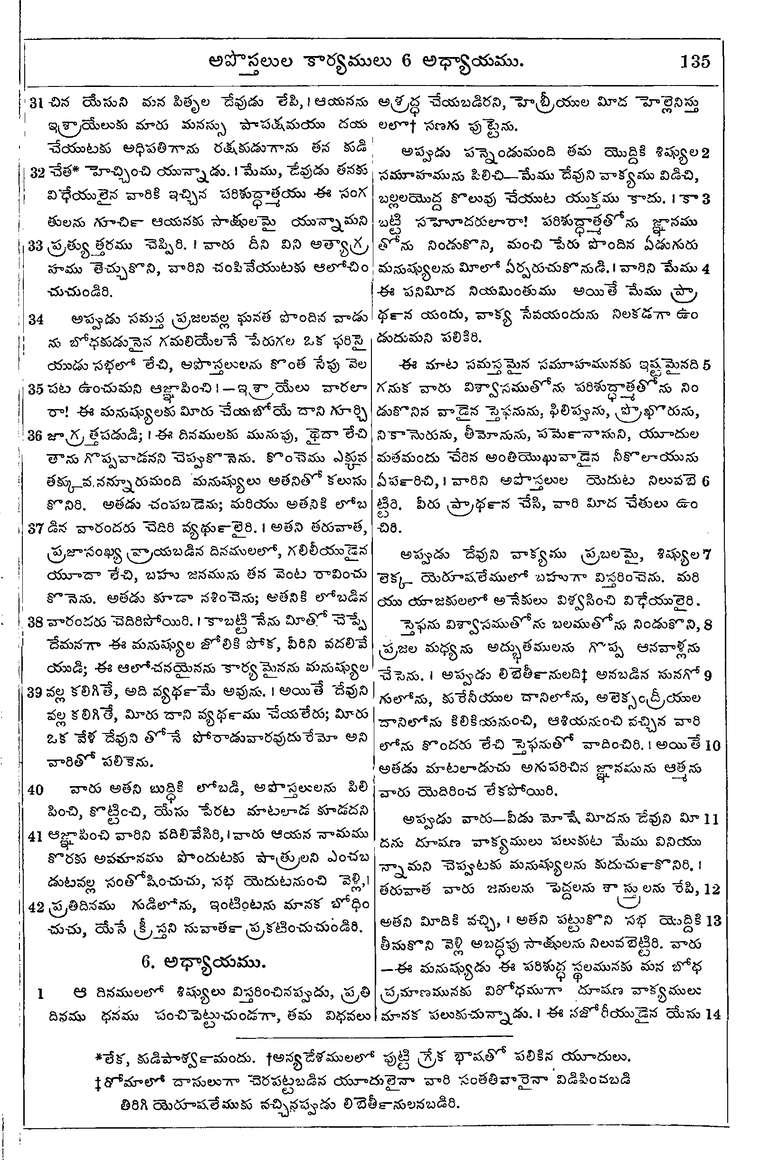 అపొస్తలుల కార్యములు 6 అధ్యాయము. 135
31 చిన యేసుని మన పితృల దేవుడు లేపి, । ఆయనను
ఇశ్రాయేలుకు మారు మనస్సు పాపక్షమయు దయ
చేయుటకు అధిపతిగాను రక్షకుడుగాను తన కుడి
32 చేత* హెచ్చించి యున్నాడు. । మేము, దేవుడు తనకు
విధేయులైన వారికి ఇచ్చిన పరిశుద్ధాత్మయు ఈ సంగ
తులను గూర్చి ఆయనకు సాక్షులమై యున్నామని
33 ప్రత్యుత్తరము చెప్పిరి. । వారు దీని విని అత్యాగ్ర
హము తెచ్చుకొని, వారిని చంపివేయుటకు ఆలోచిం
చుచుండిరి.
34 అప్పుడు సమస్త ప్రజలవల్ల ఘనత పొందిన వాడు
ను బోధకుడునైన గమలియేలనే పేరుగల ఒక ఫరిసై
యుడు సభలో లేచి, అపొస్తలులను కొంత సేపు వెల
35 పట ఉంచుమని ఆజ్ఞాపించి । — ఇశ్రాయేలు వారలా
రా! ఈ మనుష్యులకు మీరు చేయబోయే దాని గూర్చి
36 జాగ్రత్తపడుడి; । ఈ దినములకు మునుపు, థైదా లేచి
తాను గొప్పవాడనని చెప్పుకొనెను. కొంచెము ఎక్కువ
తక్కువ నన్నూరుమంది మనుష్యులు అతనితో కలుసు
కొనిరి. అతడు చంపబడెను; మరియు అతనికి లోబ
37 డిన వారందరు చెదిరి వ్యర్థులైరి. । అతని తరువాత,
ప్రజాసంఖ్య వ్రాయబడిన దినములలో, గలిలీయుడైన
యూదా లేచి, బహు జనమును తన వెంట రావించు
కొనెను. అతడు కూడా నశించెను; అతనికి లోబడిన
38 వారందరు చెదిరిపోయిరి. । కాబట్టి నేను మీతో చెప్పే
దేమనగా ఈ మనుష్యుల జోలికి పోక, వీరిని వదలివే
యుడి; ఈ ఆలోచనయైనను కార్యమైనను మనుష్యుల
39 వల్ల కలిగితే, అది వ్యర్థమే అవును. । అయితే దేవుని
వల్ల కలిగితే, మీరు దాని వ్యర్థము చేయలేరు; మీరు
ఒక వేళ దేవుని తోనే పోరాడువారవుదురేమో అని
వారితో పలికెను.
40 వారు అతని బుద్ధికి లోబడి, అపొస్తలులను పిలి
పించి, కొట్టించి, యేసు పేరట మాటలాడ కూడదని
41 ఆజ్ఞాపించి వారిని వదిలివేసిరి, । వారు ఆయన నామము
కొరకు అవమానము పొందుటకు పాత్రులని ఎంచబ
డుటవల్ల సంతోషించుచు, సభ యెదుటనుంచి వెళ్లి, ।
42 ప్రతిదినము గుడిలోను, ఇంటింటను మానక బోధిం
చుచు, యేసే క్రీస్తని సువార్త ప్రకటించుచుండిరి.
6. అధ్యాయము.
1 ఆ దినములలో శిష్యులు విస్తరించినప్పుడు, ప్రతి
దినము ధనము పంచిపెట్టుచుండగా, తమ విధవలు
అశ్రద్ధ చేయబడిరని, హెబ్రీయుల మీద హెల్లెనిస్తు
లలో† సణగు పుట్టెను.
అప్పుడు పన్నెండుమంది తమ యొద్దికి శిష్యుల 2
సమూహమును పిలిచి—మేము దేవుని వాక్యము విడిచి,
బల్లలయొద్ద కొలువు చేయుట యుక్తము కాదు. । కా 3
బట్టి సహోదరులారా! పరిశుద్ధాత్మతోను జ్ఞానము
తోను నిండుకొని, మంచి పేరు పొందిన ఏడుగురు
మనుష్యులను మీలో ఏర్పరుచుకొనుడి. । వారిని మేము 4
ఈ పనిమీద నియమింతుము అయితే మేము ప్రా
ర్థన యందు, వాక్య సేవయందును నిలకడగా ఉం
డుదుమని పలికిరి.
ఈ మాట సమస్తమైన సమూహమునకు ఇష్టమైనది 5
గనుక వారు విశ్వాసముతోను పరిశుద్ధాత్మతోను నిం
డుకొనిన వాడైన స్తెఫనును, ఫిలిప్పును, ప్రొఖొరును,
నికానెరును, తీమోనును, పర్మెనాసుని, యూదుల
మతమందు చేరిన అంతియొఖువాడైన నీకొలాయును
ఏర్పరిచి, । వారిని అపొస్తలుల యెదుట నిలువబె 6
ట్టిరి. వీరు ప్రార్థన చేసి, వారి మీద చేతులు ఉం
చిరి.
అప్పుడు దేవుని వాక్యము ప్రబలమై, శిష్యుల 7
లెక్క యెరూషలేములో బహుగా విస్తరించెను. మరి
యు యాజకులలో అనేకులు విశ్వసించి విధేయులైరి.
స్తెఫను విశ్వాసముతోను బలముతోను నిండుకొని, 8
ప్రజల మధ్యను అద్భుతములను గొప్ప ఆనవాళ్లను
చేసెను. । అప్పుడు లిబెర్తీనులది‡ అనబడిన సునగో 9
గులోను, కురేనీయుల దానిలోను, అలెక్సంద్రీయుల
దానిలోను కిలికియనుంచి, ఆశియనుంచి వచ్చిన వారి
లోను కొందరు లేచి స్తెఫనుతో వాదించిరి. । అయితే 10
అతడు మాటలాడుచు అగుపరిచిన జ్ఞానమును ఆత్మను
వారు యెదిరించ లేకపోయిరి.
అప్పుడు వారు—వీడు మోషే మీదను దేవుని మీ 11
దను దూషణ వాక్యములు పలుకుట మేము వినియు
న్నామని చెప్పుటకు మనుష్యులను కుదుర్చుకొనిరి. ।
తరువాత వారు జనులను పెద్దలను శాస్త్రులను రేపి, 12
అతని మీదికి వచ్చి, । అతని పట్టుకొని సభ యొద్దికి 13
తీసుకొని వెళ్లి అబద్ధపు సాక్షులను నిలువబెట్టిరి. వారు
—ఈ మనుష్యుడు ఈ పరిశుద్ధ స్థలమునకు మన బోధ
ప్రమాణమునకు విరోధముగా దూషణ వాక్యములు
మానక పలుకుచున్నాడు. । ఈ నజోరీయుడైన యేసు 14
*లేక, కుడిపార్శ్వమందు. †అన్యదేశములలో పుట్టి గ్రేక భాషతో పలికిన యూదులు.
‡రోమాలో దాసులుగా చెరపట్టబడిన యూదులైనా వారి సంతతివారైనా విడిపించబడి
తిరిగి యెరూషలేముకు వచ్చినప్పుడు లిబెర్తీనులనబడిరి.